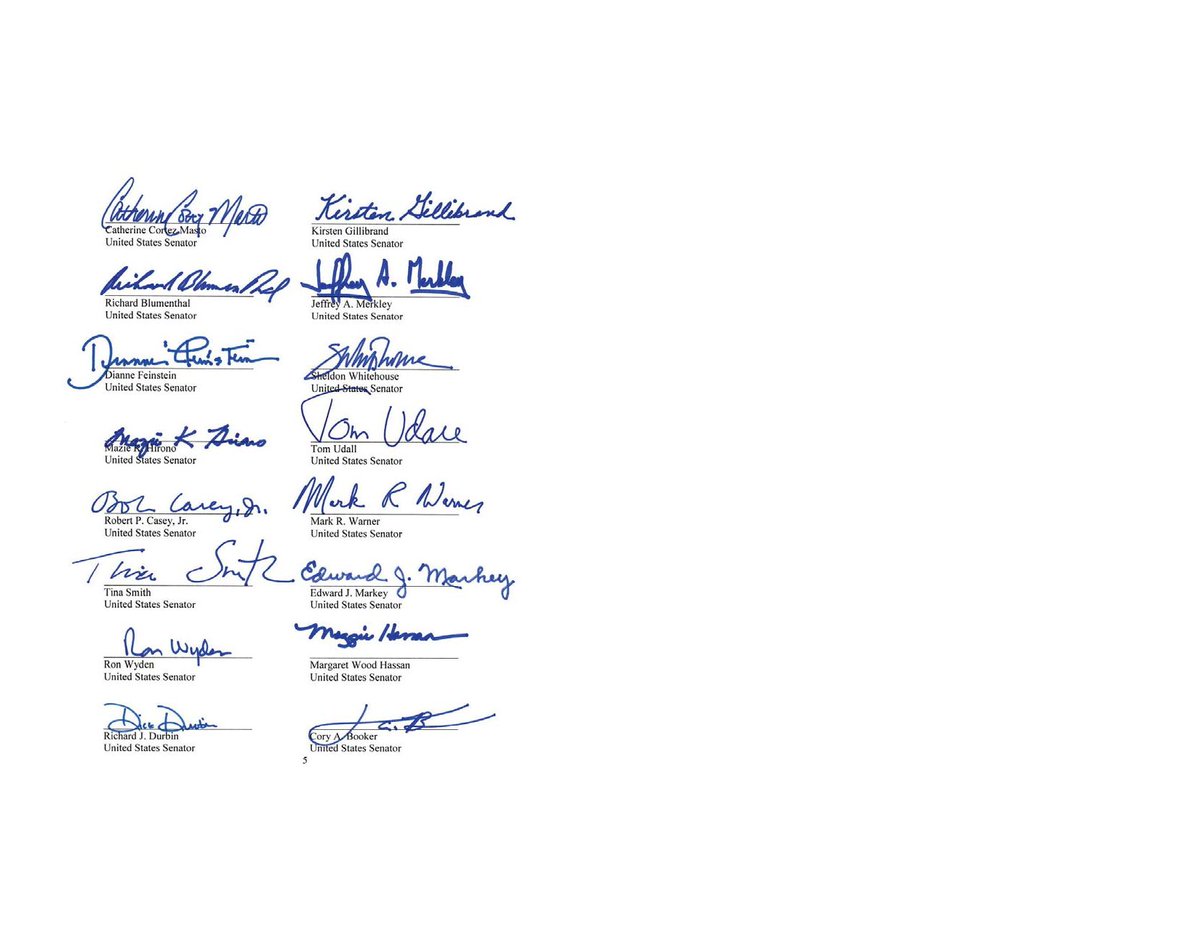 Catherine Cortez Masto
Catherine Cortez Masto
United States Senator
Kirsten Gillibrand
Kirsten Gillibrand
United States Senator
Richard Blumenthal
Richard Blumenthal
United States Senator
Jeffrey A. Merkley
Jeffrey A. Merkley
United States Senator
Dianne Feinstein
Dianne Feinstein
United States Senator
SWhitehouse
Sheldon Whitehouse
United States Senator
Mazie K Hirono
Mazie K. Hirono
United States Senator
Tom Udall
Tom Udall
United States Senator
Bob Casey, Jr.
Robert P. Casey, Jr.
United States Senator
Mark R Warner
Mark R. Warner
United States Senator
Tina Smith
Tina Smith
United States Senator
Edward J. Markey
Edward J. Markey
United States Senator
Ron Wyden
Ron Wyden
United States Senator
Maggie Hassan
Margaret Wood Hassan
United States Senator
Dick Durbin
Richard J. Durbin
United States Senator
Cory A. Booker
United States Senator
5